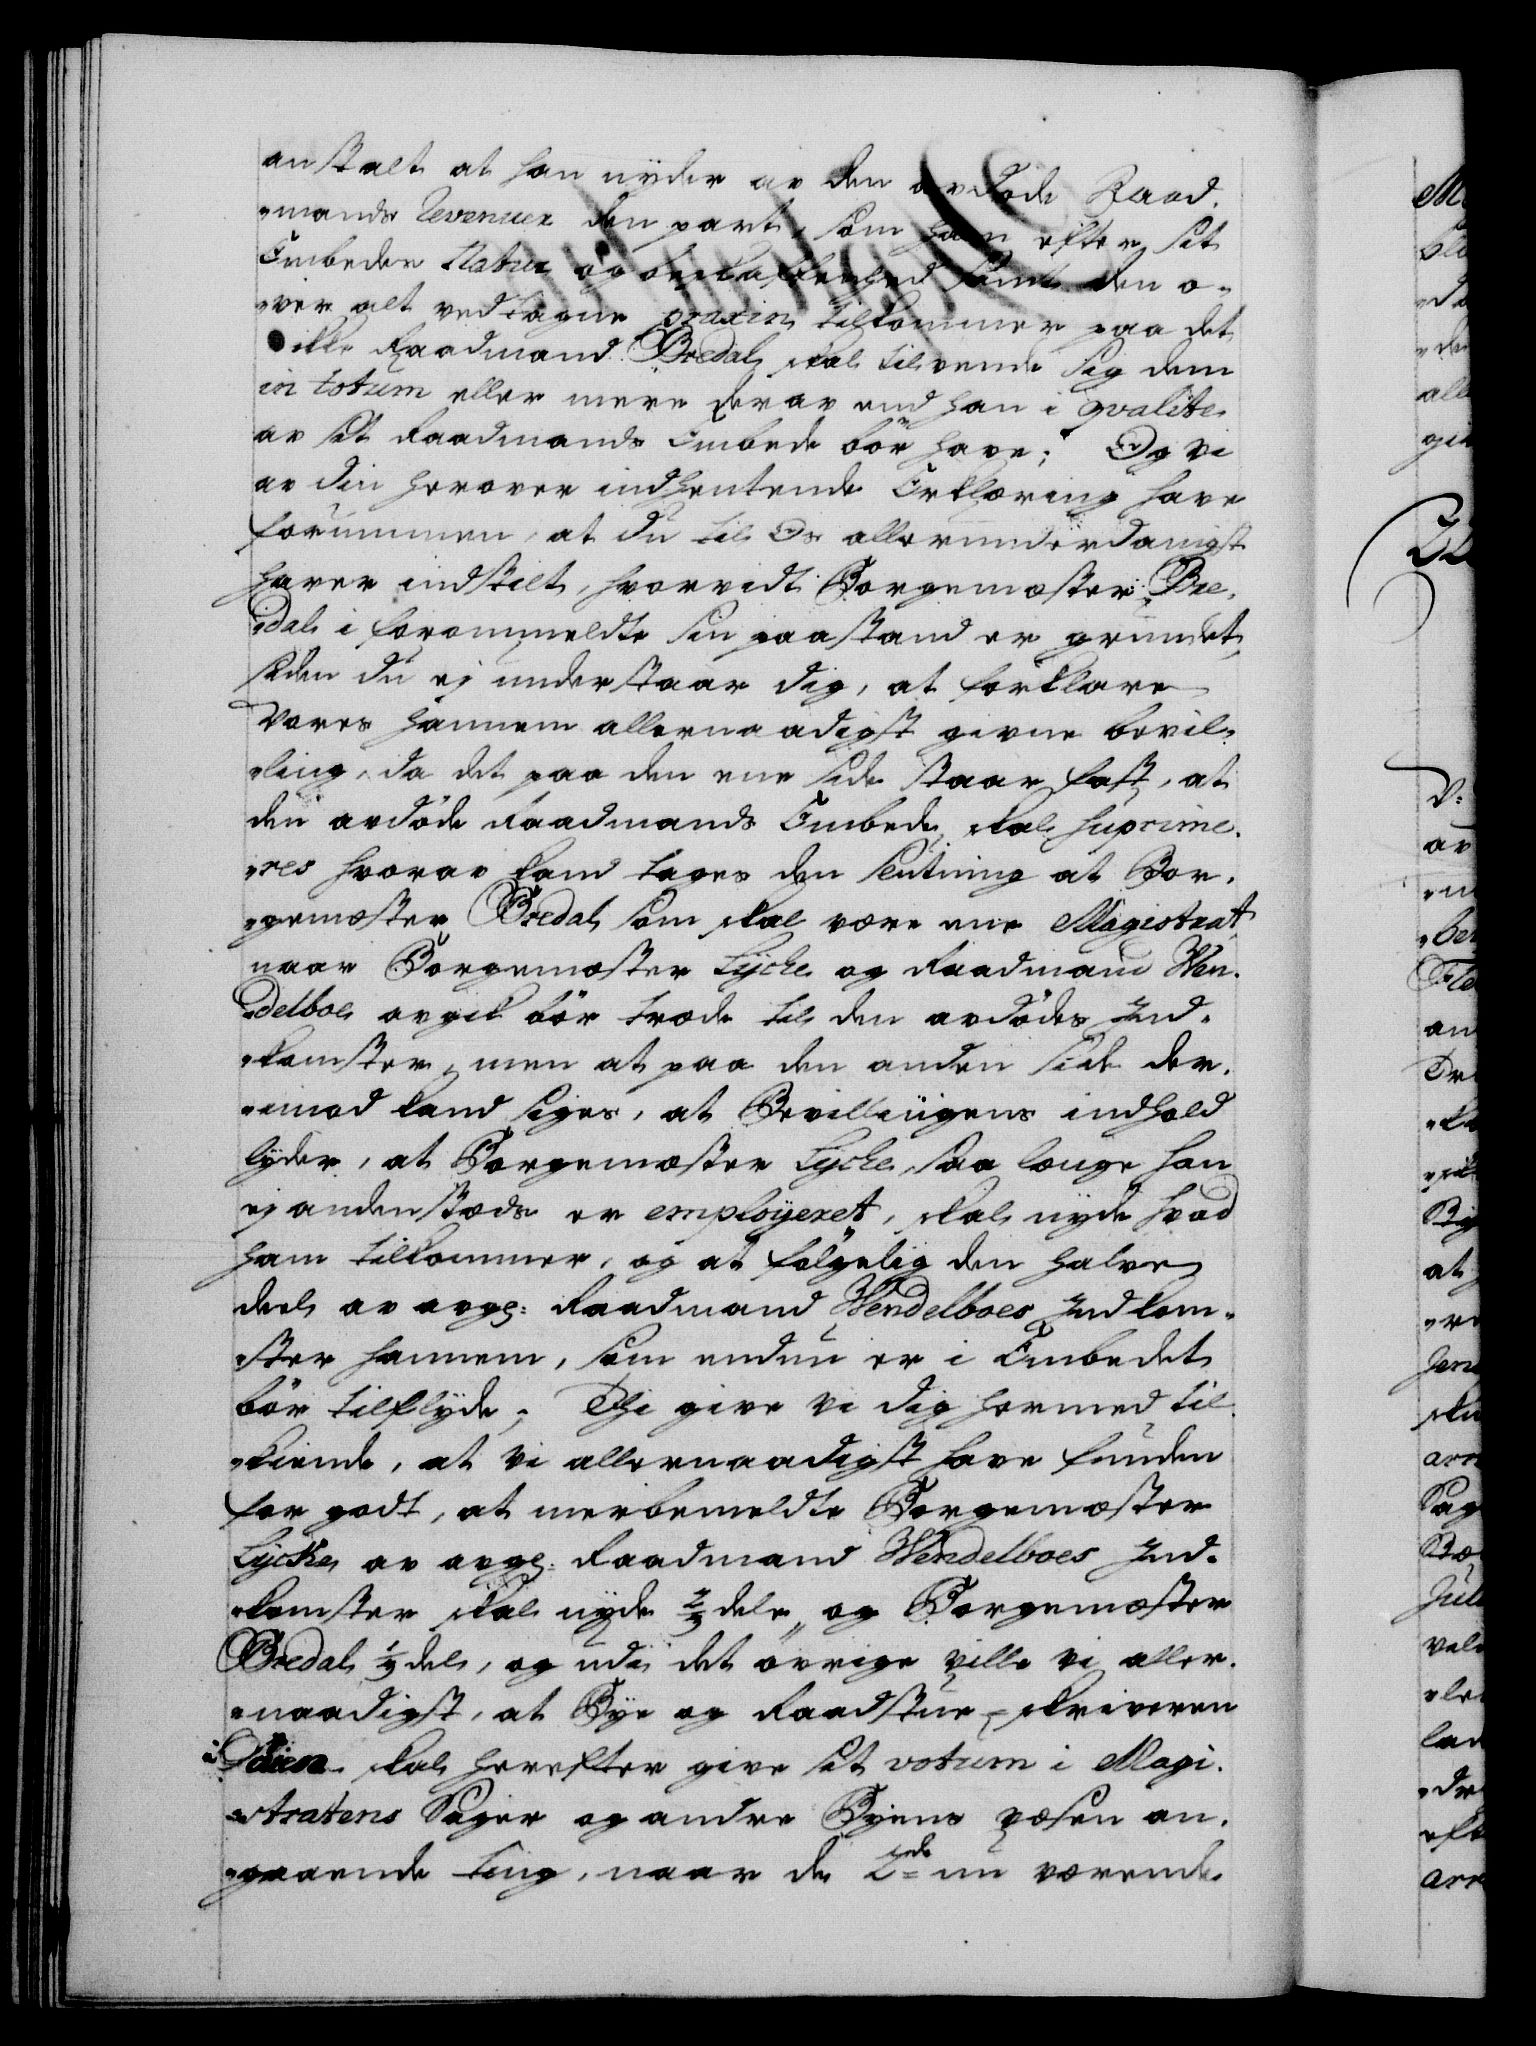 anstalt at han nyder av den avdöde Raad-
mands Revenuer den part, som ham efter sit
Embedes Natur og beskaffenhed samt den o-
ver alt vedtagne praxin tilkommer paa det
ikke Raadmand Bredal skal tilvende sig dem
in totum eller mere derav end han i qvalite
av sit Raadmands Embede bör have; Og vi
av din herover indhentende Erklæring have
fornummen, at du til Os allerunderdanigst
haver indstilt, hvorvidt Borgemæster Bre-
dal i forommeldte sin paastand er grundet,
siden du ej understaar dig, at forklare
Vores hannem allernaadigst givne bevil-
ling, da det paa den ene side staar fast, at
den avdöde Raadmands Embede skal suprime-
res hvorav kand tages den slutning at Bor-
gemæster Bredal som skal være ene Magistrat
naar Borgemæster Lycke og Raadmand Wen-
delboe avgik bör træde til den avdödes Ind-
komster, men at paa den anden side der-
imod kand siges, at Bevillingens indhold
lyder, at Borgemæster Lycke, saa længe han
ej andenstæds er employeret, skal nyde hvad
ham tilkommer, og at fölgelig den halve
deel av avg: Raadmand Wendelboes Indkom-
ster hannem, som endnu er i Embedet
bör tilflyde; Thi give vi dig hermed til-
kiende, at vi allernaadigst have funden
for godt, at meerbemeldte Borgemæster
Lycke av avg: Raadmand Wendelboes Ind-
komster skal nyde 2/3 dele, og Borgemæster
Bredal 1/3 del, og udi det övrige ville vi aller-
naadigst, at Bye og Raadstue-skriveren
skal herefter give sit votum i Magi-
stratens Sager og andre Byens væsen an-
gaaende ting, naar de 2de nu værende